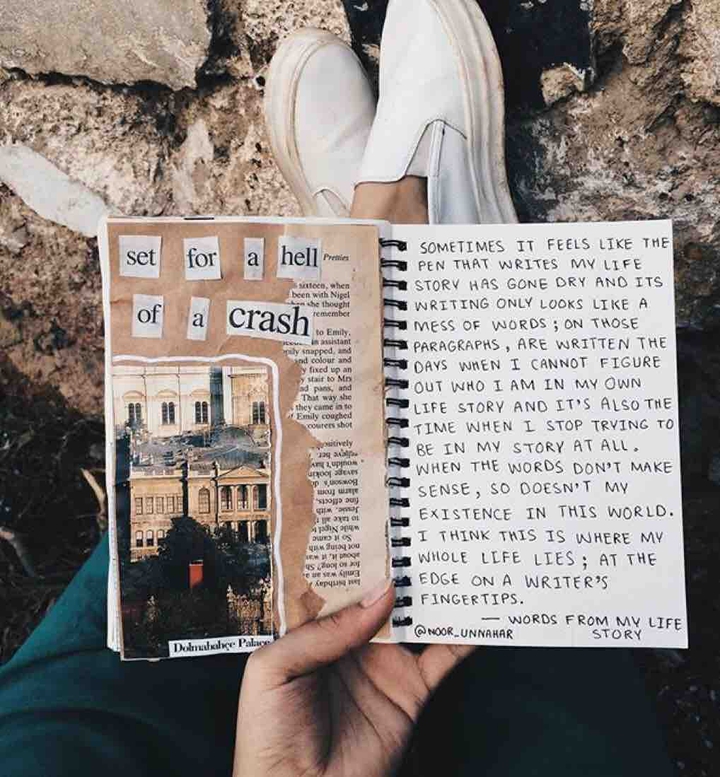 set for a hell
of a crash
Pretties
sixteen, when
been with Nigel
she thought
remember
to Emily,
an assistant
snapped, and
and colour and
fixed up an
stair to Mrs
pans, and
That way she
they came in to
Emily coughed
shot
last birthday
Emily was an
for so long? Sh
about it, it was
not being with
So it came
while Nigel
to take all
Jessie, with
fine effects,
alarm from
Bowson's
savage
wouldn't
Dolmabahçe Palace
SOMETIMES IT FEELS LIKE THE
PEN THAT WRITES MY LIFE
STORY HAS GONE DRY AND ITS
WRITING ONLY LOOKS LIKE A
MESS OF WORDS ; ON THOSE
PARAGRAPHS, ARE WRITTEN THE
DAYS WHEN I CANNOT FIGURE
OUT WHO I AM IN MY OWN
LIFE STORY AND IT'S ALSO THE
TIME WHEN I STOP TRYING TO
BE IN MY STORY AT ALL.
WHEN THE WORDS DON'T MAKE
SENSE, SO DOESN'T MY
EXISTENCE IN THIS WORLD.
I THINK THIS IS WHERE MY
WHOLE LIFE LIES ; AT THE
EDGE ON A WRITER'S
FINGERTIPS.
— WORDS FROM MY LIFE
STORY
@NOOR_UNNAHAR